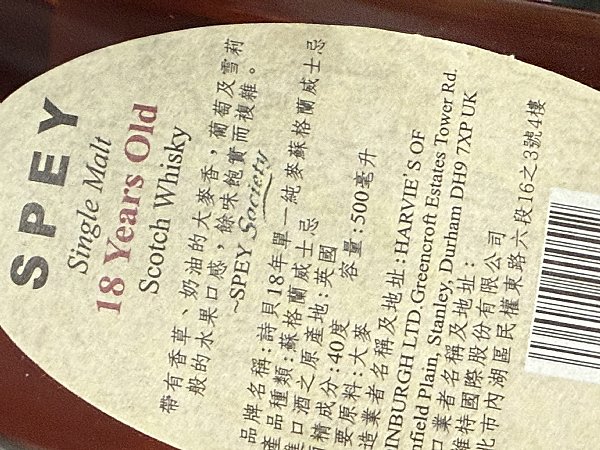 SPEY
Single Malt
18 Years Old
Scotch Whisky
帶有香草、奶油的大麥香，葡萄及雪莉
般的水果口感，餘味飽實而複雜。
~SPEY Society
品牌名稱:詩貝18年單一純麥蘇格蘭威士忌
產品種類:蘇格蘭威士忌
進口酒之原產地:英國
精成分:40度 容量:500毫升
要原料:大麥
造業者名稱及地址:HARVIE'S OF
INBURGH LTD. Greencroft Estates Tower Rd.
nfield Plain, Stanley, Durham DH9 7XP UK
口業者名稱及地址:
維特國際股份有限公司
北市內湖區民權東路六段16之3號4樓